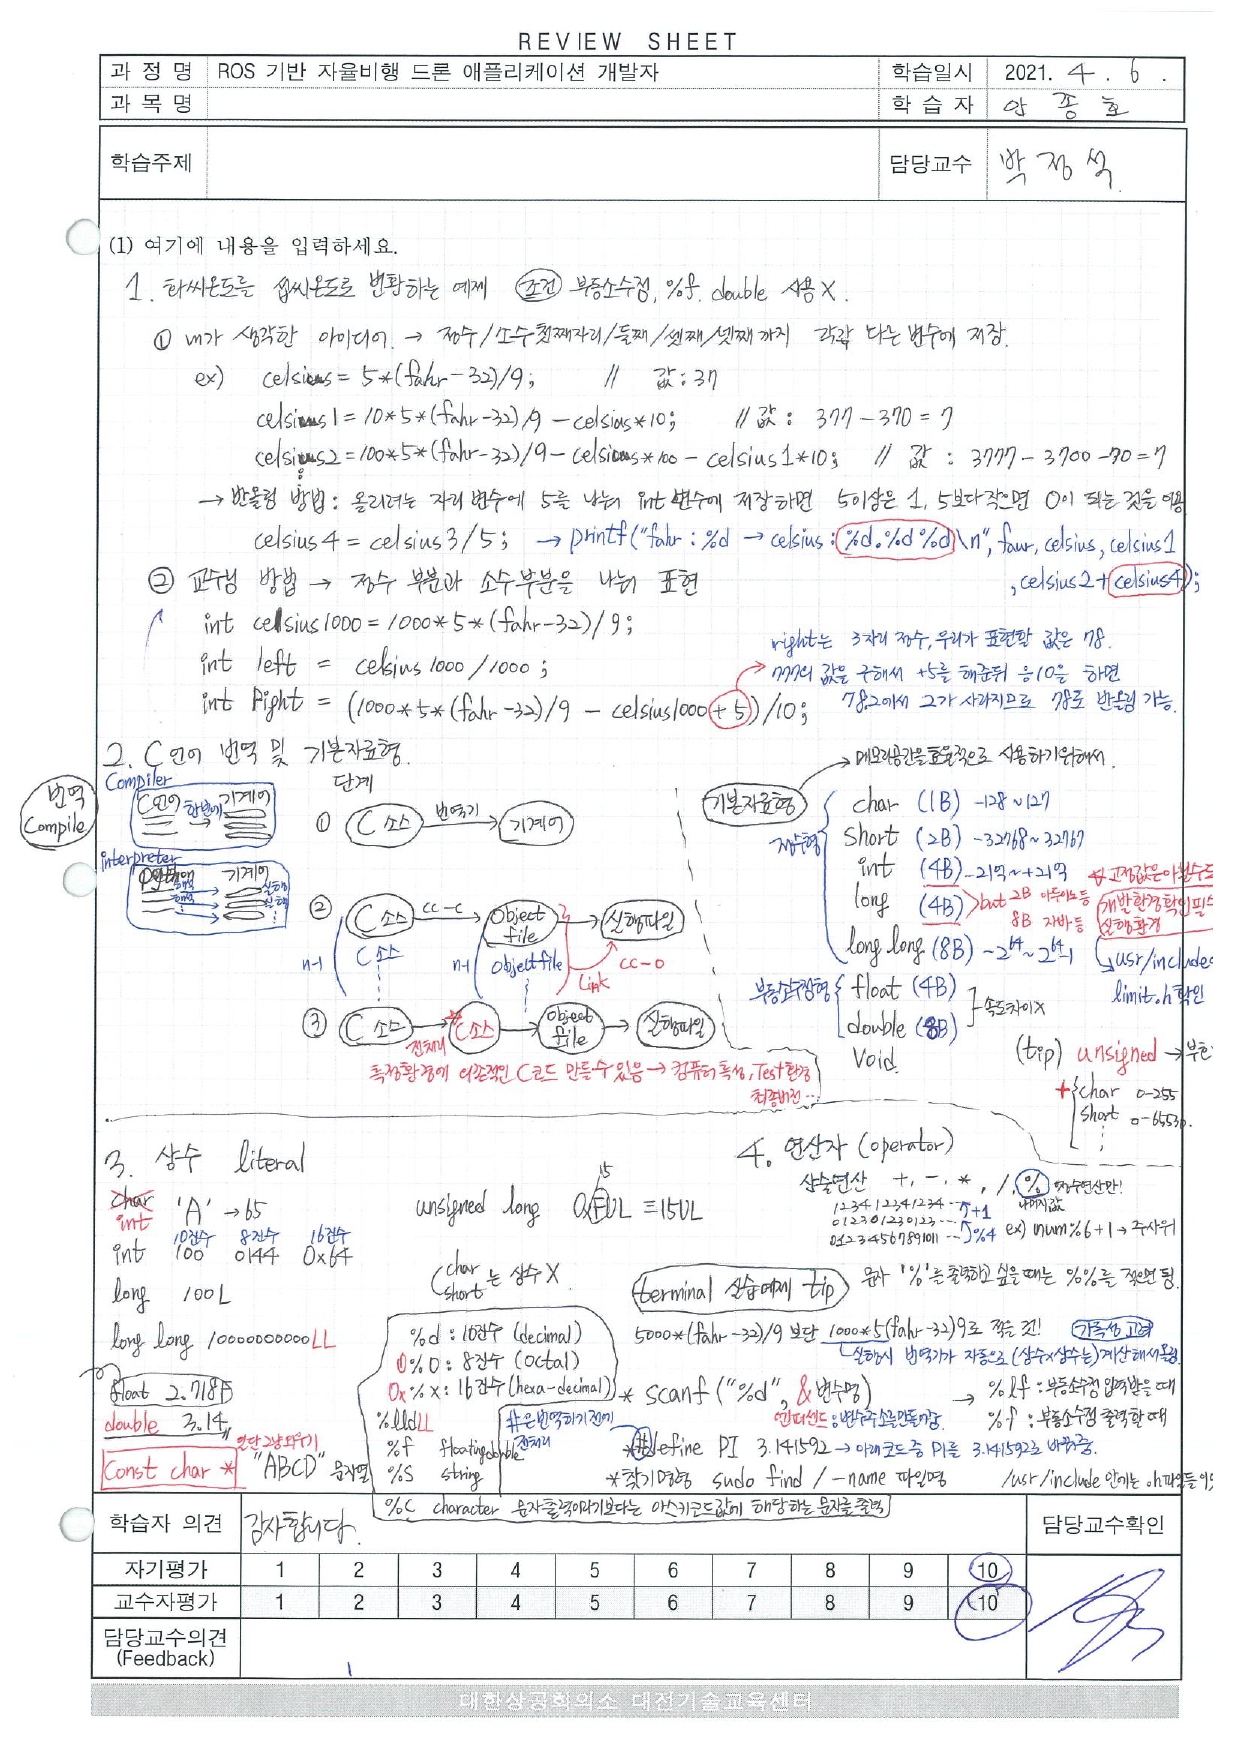 REVIEW SHEET
과 정 명 ROS 기반 자율비행 드론 애플리케이션 개발자 학습일시 2021. 4 . 6 .
과 목 명 학 습 자 안 종 호
학습주제 담당교수 박 정 석
(1) 여기에 내용을 입력하세요.
1. 화씨온도를 섭씨온도로 변환하는 예제 조건 부동소수점, %f. double 사용 X.
① 내가 생각한 아이디어. → 정수/소수첫째자리/둘째/셋째/넷째 까지 각각 다른 변수에 저장.
ex) celsius = 5*(fahr-32)/9; // 값 : 37
celsius1 = 10*5*(fahr-32)/9 - celsius*10; // 값 : 377 - 370 = 7
celsius2 = 100*5*(fahr-32)/9 - celsius*100 - celsius1*10; // 값 : 3777 - 3700 - 70 = 7
→ 반올림 방법 : 올리려는 자리 변수에 5를 나눠 int 변수에 저장하면 5이상은 1, 5보다작으면 0이 되는 것을 이용
celsius4 = celsius3/5; → printf("fahr : %d → celsius : %d.%d%d\n", fawr, celsius, celsius1
, celsius2 + celsius4);
② 교수님 방법 → 정수 부분과 소수부분을 나눠 표현
int celsius1000 = 1000*5*(fahr-32)/9;
int left = celsius1000/1000;
int Right = (1000*5*(fahr-32)/9 - celsius1000 + 5))/10;
right는 3자리 정수, 우리가 표현할 값은 78.
777의 값을 구해서 +5를 해준뒤 ÷10을 하면
78.2에서 2가 사라지므로 78로 반올림 가능.
2. C언어 번역 및 기본자료형.
번역
Compile
Compiler
C언어 한번에 기계어
interpreter
기계어
해석 실행
해석 실행
단계
① C 소스 번역기 기계어
② C 소스 cc -c Object file 실행파일
n-1 C 소스 n-1 objectfile Link cc -o
③ C 소스 전처리 C소스 Object file 실행파일
특정환경에 의존적인 C코드 만들수있음 → 컴퓨터 특성, Test환경
최종버전 ...
메모리공간을 효율적으로 사용하기위해서.
기본자료형
정수형 char (1B) -128 ~ 127
short (2B) -32768 ~ 32767
int (4B) -21억 ~ +21억
long (4B) but 2B 아두이노 등
8B 자바 등
고정값은 아닐수도
개발환경확인필수
실행환경
long long (8B) -2^64 ~ 2^64-1
usr/include
limit.h 확인
부동소수점형 float (4B)
double (8B) 속도차이X
Void
(tip) unsigned →
+ char 0-255
short
3. 상수 literal
char
int 'A' → 65
10진수 8진수 16진수
int 100 0144 0x64
long 100L
long long 10000000000LL
float 2.718F
double 3.14
일단 그냥 외우기
Const char * "ABCD" 문자열
unsigned long 0xFUL ≡ 15UL
15
char
short 는 상수 X
%d : 10진수 (decimal)
0%o : 8진수 (octal)
0x%x : 16진수 (hexa-decimal)
%lldLL
%f floating double
%s string
%c character 문자출력이라기보다는 아스키코드값에 해당하는 문자를 출력
#은 번역하기 전에
전처리
4. 연산자 (operator)
산술연산 +, -, *, /, % 정수연산만!
나머지값
123412341234 ... +1
012301230123 ...
01234567891011 ... %4 ex) num%6+1 → 주사위
terminal 실습예제 tip 문자 '%'를 출력하고 싶을 때는 %%를 적으면 됨.
5000*(fahr-32)/9 보단 1000*5(fahr-32)9로 적을 것! 가독성 고려
실행시 번역기가 자동으로 (상수x상수는) 계산해서 올림
* scanf ("%d", &변수명) → %lf : 부동소수점 입력받을 때
엔퍼센드 : 변수주소를 만들어줌. %f : 부동소수점 출력할 때
* #define PI 3.141592 → 아래코드 중 PI를 3.141592로 바꿔줌.
* 찾기명령 sudo find / -name 파일명 /usr/include 안에는 .h파일들이
학습자 의견 감사합니다. 담당교수확인
자기평가 1 2 3 4 5 6 7 8 9 10
교수자평가 1 2 3 4 5 6 7 8 9 10
담당교수의견
(Feedback)
대한상공회의소 대전기술교육센터